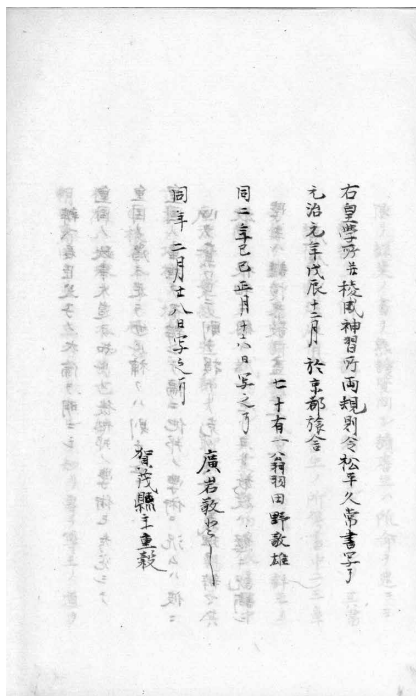 右皇學所并稜威神習所両規則令松平久常書写了
元治元年戊辰十二月 於京都旅舎
七十有一翁羽田野敬雄
同二年己巳正月十八日写之
廣岩敬
同年二月廿八日写之
賀茂縣主重毅